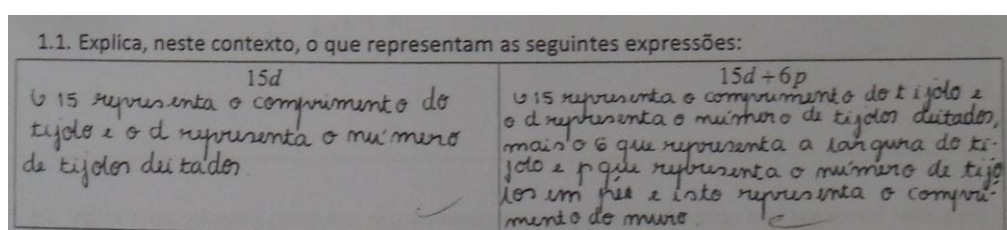 1.1. Explica, neste contexto, o que representam as seguintes expressões:
15d
↳ 15 representa o comprimento do
tijolo e o d representa o número
de tijolos deitados
15d+6p
↳ 15 representa o comprimento do tijolo e
o d representa o número de tijolos deitados,
mais o 6 que representa a largura do ti-
jolo e p que representa o número de tijo
los em pés e isto representa o compri-
mento do muro